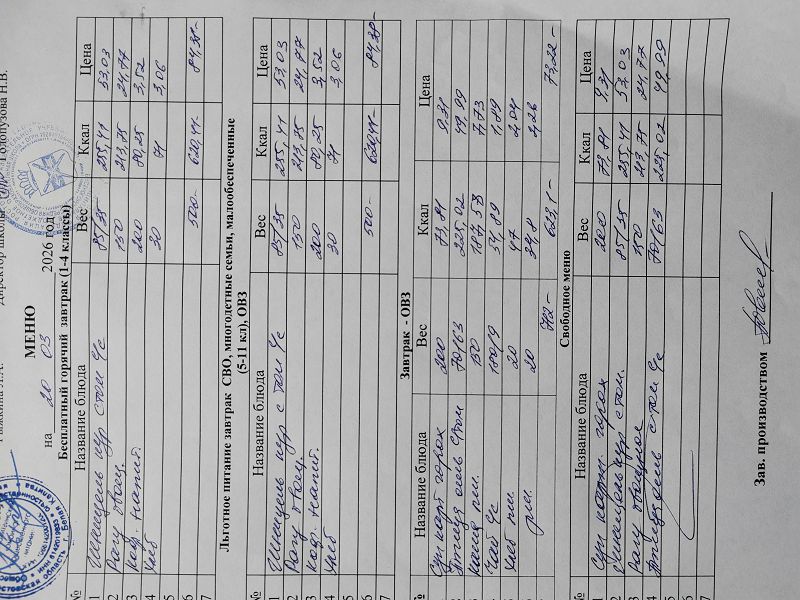 Голопузова Н.В.
МЕНЮ
на 20 03 2026 год
Бесплатный горячий завтрак (1-4 классы)
№ Название блюда Вес Ккал Цена
1 Шницель кур с том с/с 85/35 255,41 53,03
2 Рагу овощ. 150 213,75 24,77
3 Коф. напит. 200 80,25 3,52
4 Хлеб 30 71 3,06
5
6 500- 620,41- 84,38-
7
Льготное питание завтрак СВО, многодетные семьи, малообеспеченные
(5-11 кл), ОВЗ
№ Название блюда Вес Ккал Цена
1 Шницель кур с том с/с 85/35 255,41 53,03
2 Рагу овощ. 150 213,75 24,77
3 Коф. напит. 200 80,25 3,52
4 Хлеб 30 71 3,06
5
6 500- 620,41- 84,38-
7
Завтрак - ОВЗ
№ Название блюда Вес Ккал Цена
Суп карт горох 200 73,81 9,31
70/63 225,02 49,99
150 187,53 7,73
Чай с/с 180/9 54,89 1,89
Хлеб пш. 20 47 2,04
рж. 20 34,8 2,26
712- 623,1- 73,22-
Свободное меню
№ Название блюда Вес Ккал Цена
1 Суп карт. горох 200 73,81 9,31
2 Шницель кур с том. 85/35 255,41 53,03
3 Рагу овощное 150 213,75 24,77
4 с том с/с 70/63 225,02 49,99
5
6
7
Зав. производством